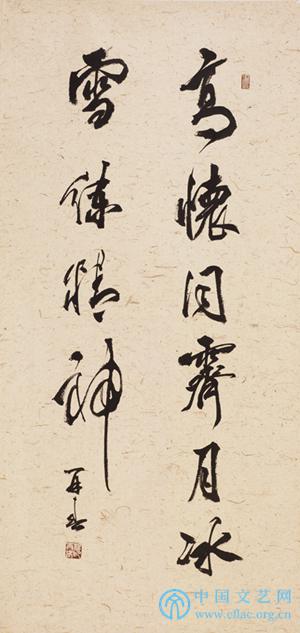 高懷同霽月冰
雪練精神
中国文艺网
www.cflac.org.cn